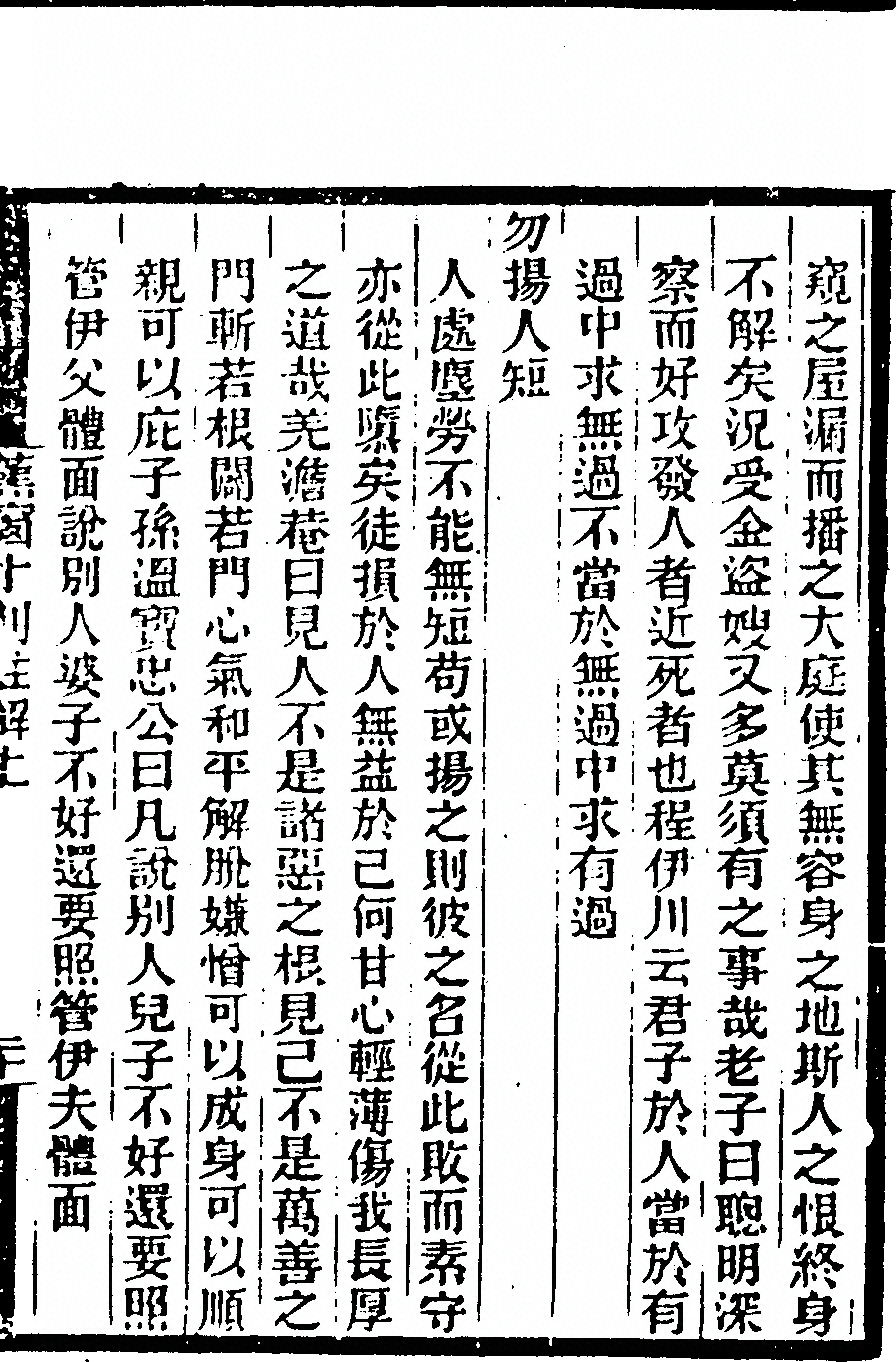 窺之屋漏而播之大庭使其無容身之地斯人之恨終身
不解矣況受金盜嫂又多莫須有之事哉老子曰聰明深
察而好攻發人者近死者也程伊川云君子於人當於有
過中求無過不當於無過中求有過
勿揚人短
人處塵勞不能無短苟或揚之則彼之名從此敗而素守
亦從此隳矣徒損於人無益於己何甘心輕薄傷我長厚
之道哉羌澹菴曰見人不是諸惡之根見己不是萬善之
門斬若根闢若門心氣和平解脫嫌憎可以成身可以順
親可以庇子孫溫寶忠公曰凡說別人兒子不好還要照
管伊父體面說別人婆子不好還要照管伊夫體面
蕉窗十則註解上